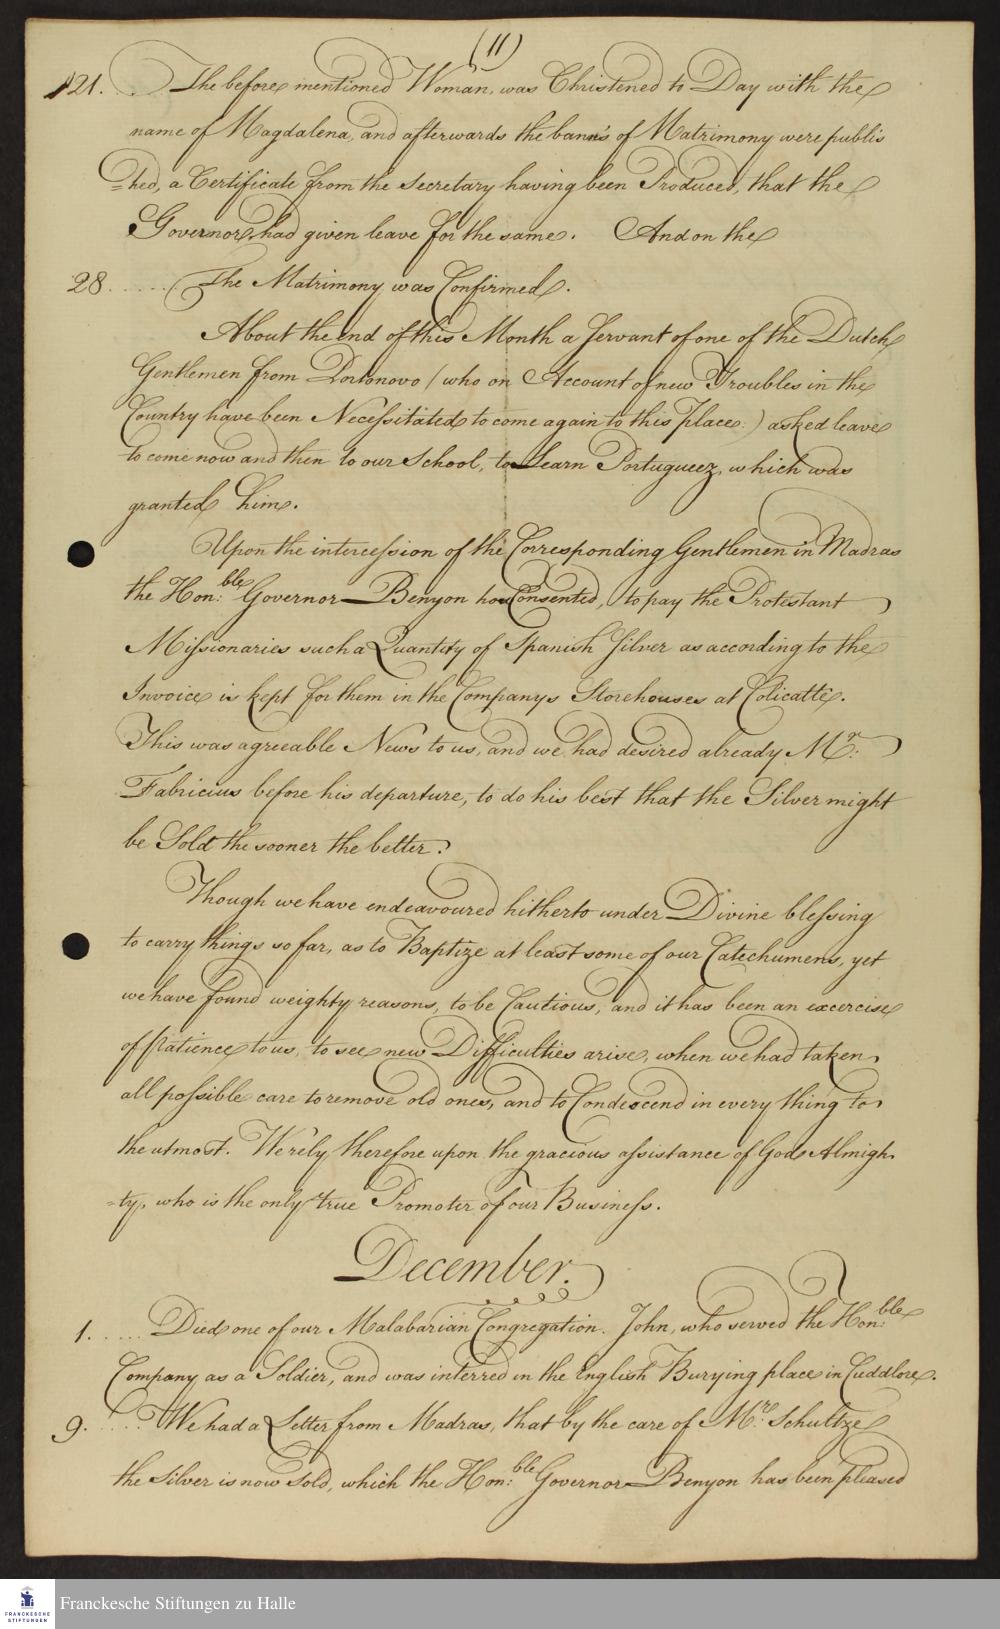 (11)
21. .. The before mentioned Woman, was Christened to Day with the
name of Magdalena, and afterwards the banns of Matrimony were publis
=hed, a Certificate from the Secretary having been Produced, that the
Governor had given leave for the same. And on the
28 ..... The Matrimony was Confirmed.
About the end of this Month a Servant of one of the Dutch
Gentlemen from Portonovo (who on Account of new Troubles in the
Country have been Necessitated to come again to this place:) asked leave
to come now and then to our School, to Learn Portugueez, which was
granted him.
Upon the intercession of the Corresponding Gentlemen in Madras
the Hon:ble Governor Benyon has Consented, to pay the Protestant
Missionaries such a Quantity of Spanish Silver as according to the
Invoice is kept for them in the Companys Storehouses at Colicatte.
This was agreeable News to us, and we had desired already Mr:
Fabricius before his departure, to do his best that the Silver might
be Sold the sooner the better.
Though we have endeavoured hitherto under Divine blessing
to carry things so far, as to Baptize at least some of our Catechumens, yet
we have found weighty reasons, to be Cautious, and it has been an excercise
of Patience to us, to see new Difficulties arise, when we had taken
all possible care to remove old ones, and to Condescend in every thing to
the utmost. We rely therefore upon the gracious assistance of God Almigh
=ty, who is the only true Promoter of our Business.
December.
1. ..... Died one of our Malabarian Congregation. John, who served the Hon:ble
Company as a Soldier, and was interred in the English Burying place in Cuddlore.
9. .... We had a Letter from Madras, that by the care of Mr: Schultze
the Silver is now Sold, which the Hon:ble Governor Benyon has been pleased
FRANCKESCHE
STIFTUNGEN
Franckesche Stiftungen zu Halle